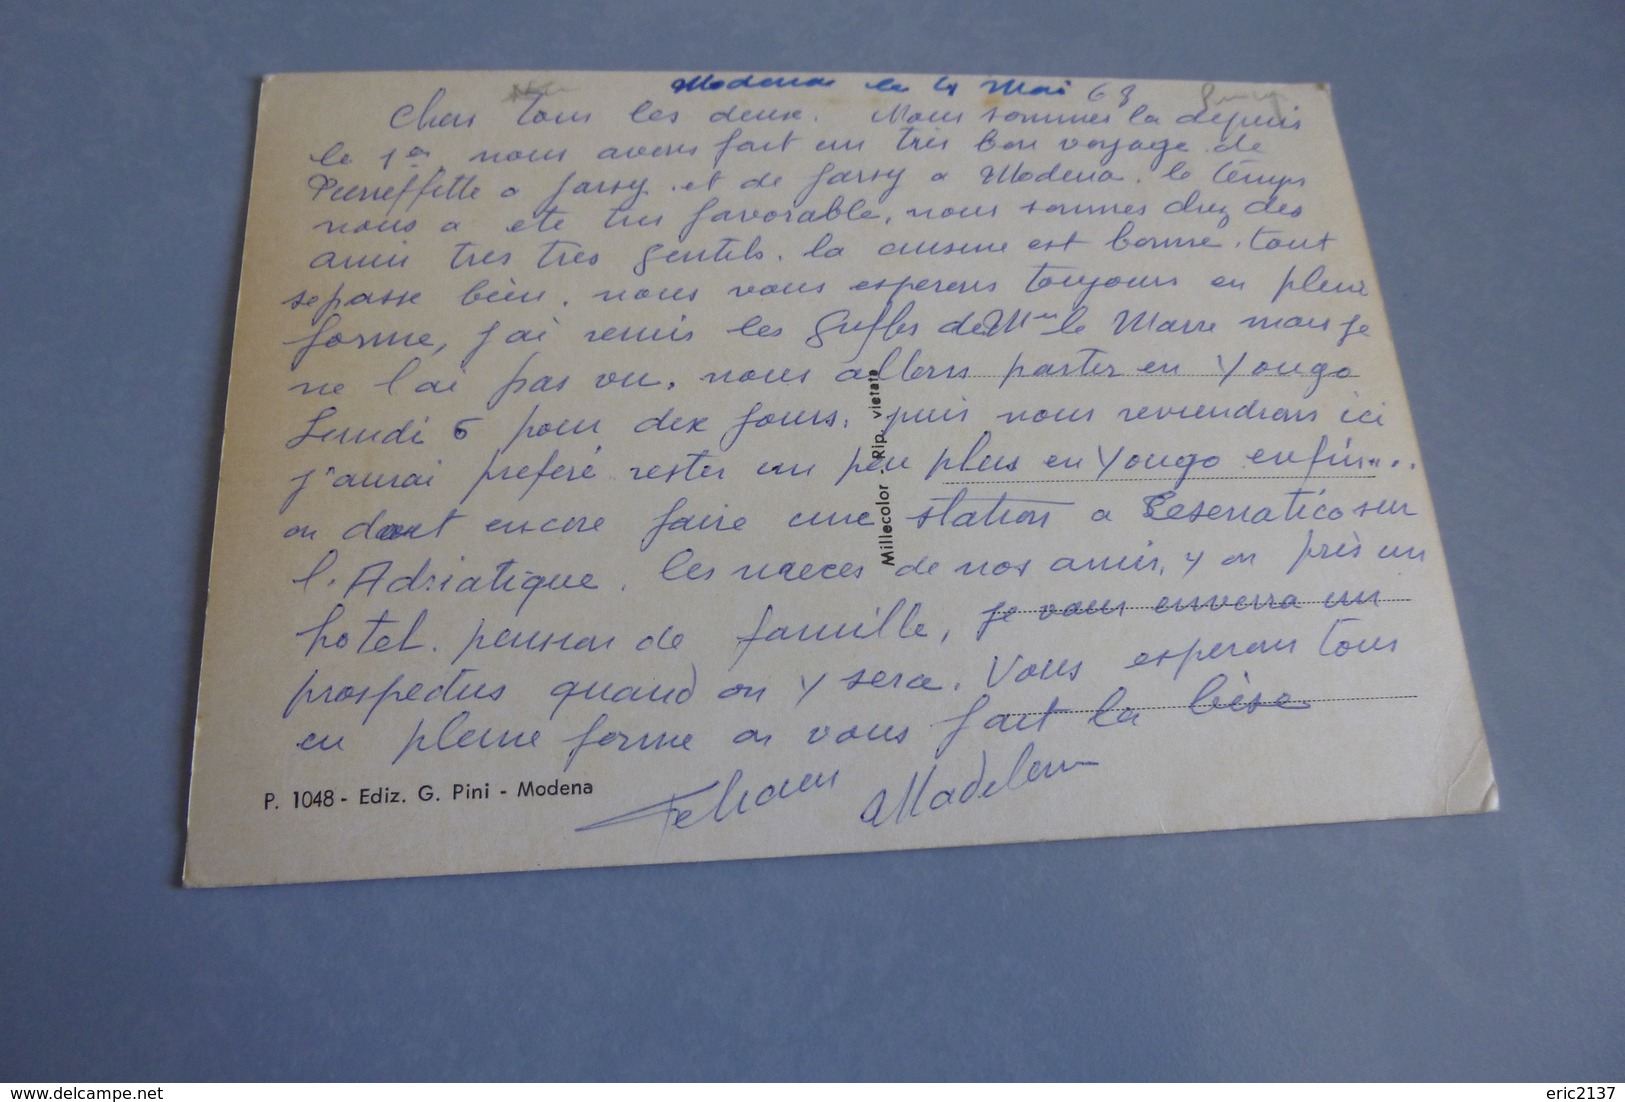 Modena le 4 Mai 68
Chers tous les deux. Nous sommes la depuis
le 1er, nous avons fait un très bon voyage de
Pierrefitte a Jarsy. et de Jarsy a Modena. le temps
nous a ete tres favorable, nous sommes chez des
amis tres tres gentils. la cuisine est bonne. tout
se passe bien. nous vous esperons toujours en pleine
forme, j'ai remis les de le Marre mais je
ne l'ai pas vu. nous allons partir en Yougo
Lundi 6 pour dix jours, puis nous reviendrons ici
j'aurai préferé rester un peu plus en Yougo enfin...
on doit encore faire une station a Cesenatico sur
l'Adriatique. les nieces de nos amis, y on près un
hotel. pension de famille, je vous enverra un
prospectus quand on y sera. Vous esperons tous
en pleine forme on vous fait la bise
Madeleine
P. 1048 - Ediz. G. Pini - Modena
Millecolor - Rip. vietata
delcampe.net
eric2137